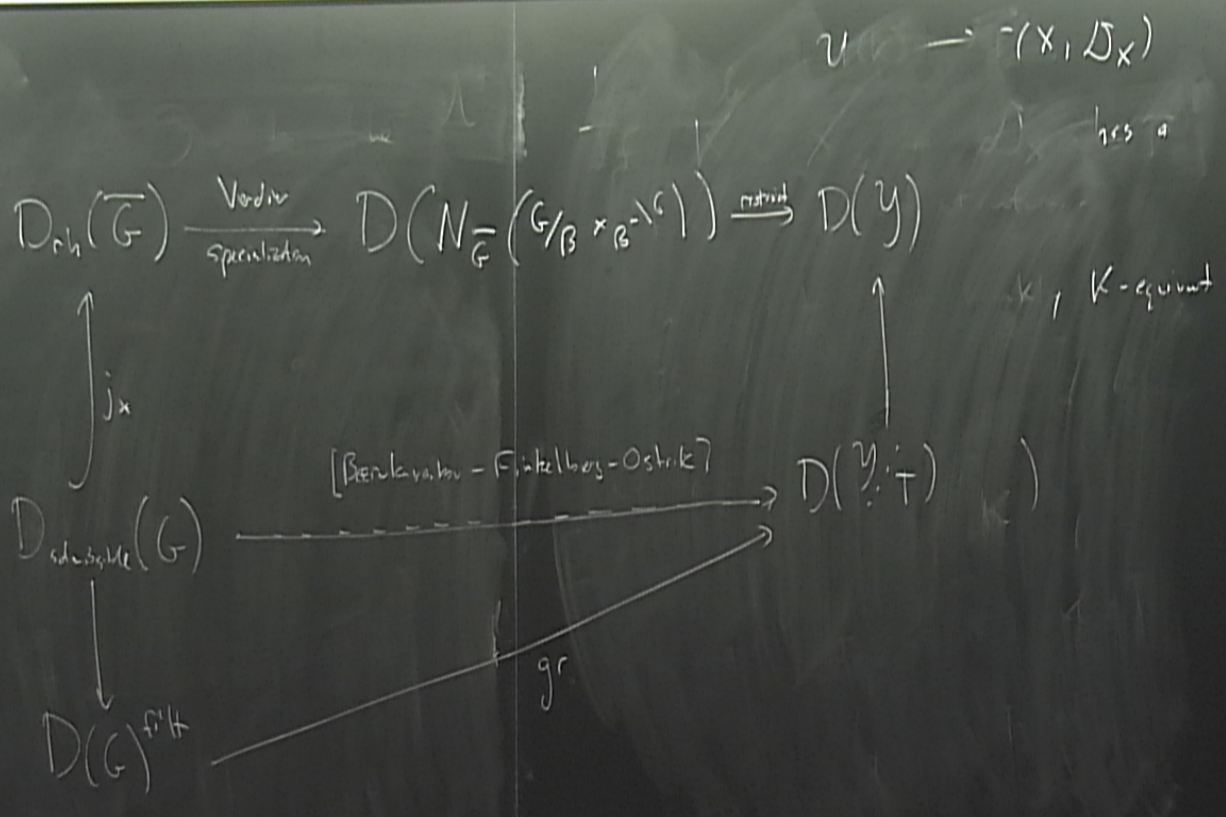 U → Γ(X, D_X)
has a
D_rh(G̅) —Verdier specialization→ D(N_G̅(G/B × B⁻\G)) —restrict→ D(Y)
, K-equivnt
j_*
[Bezrukavnikov - Finkelberg - Ostrik]
D_admissible(G) D(Y ÷ T) )
gr
D(G)^filt